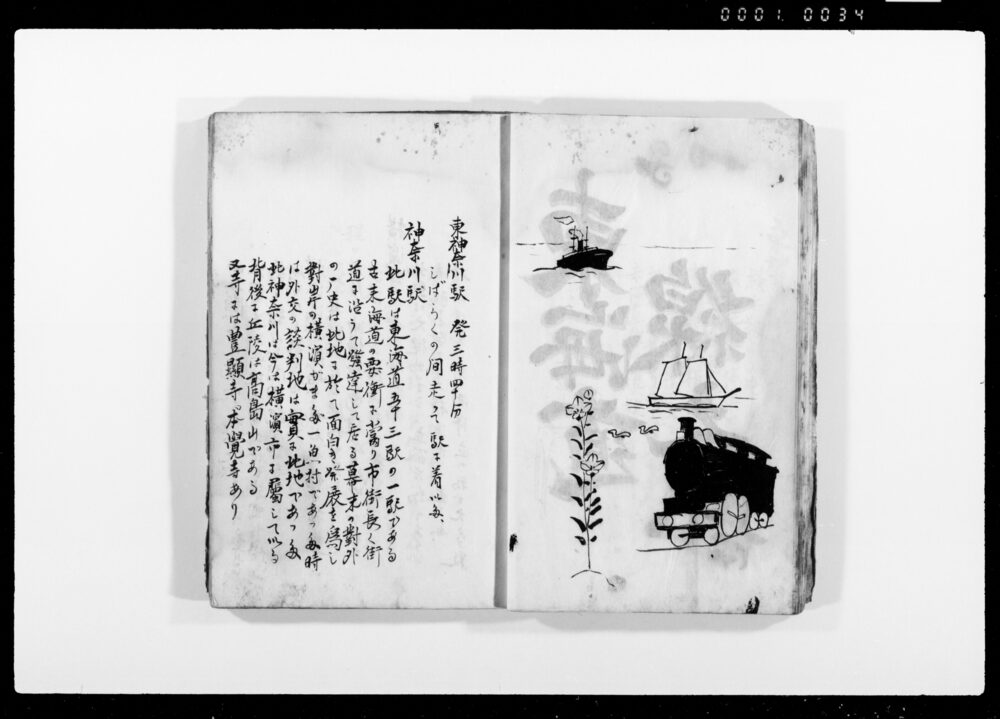 0001. 0034
東海道
東神奈川駅 発三時四十分
しばらくの間走って駅に着いた、
神奈川駅
此駅は東海道五十三駅の一駅である
古来海道の要衝に当り市街長く街
道に沿うて発達して居る幕末の対外
の一史は此地に於て面白き発展を為し
対岸の横濱がまだ一漁村であった時
は外交の談判地は實に此地であった
此神奈川は今は横濱市に属している
背後に丘陵は高島山である
又寺には豊顯寺本覺寺あり